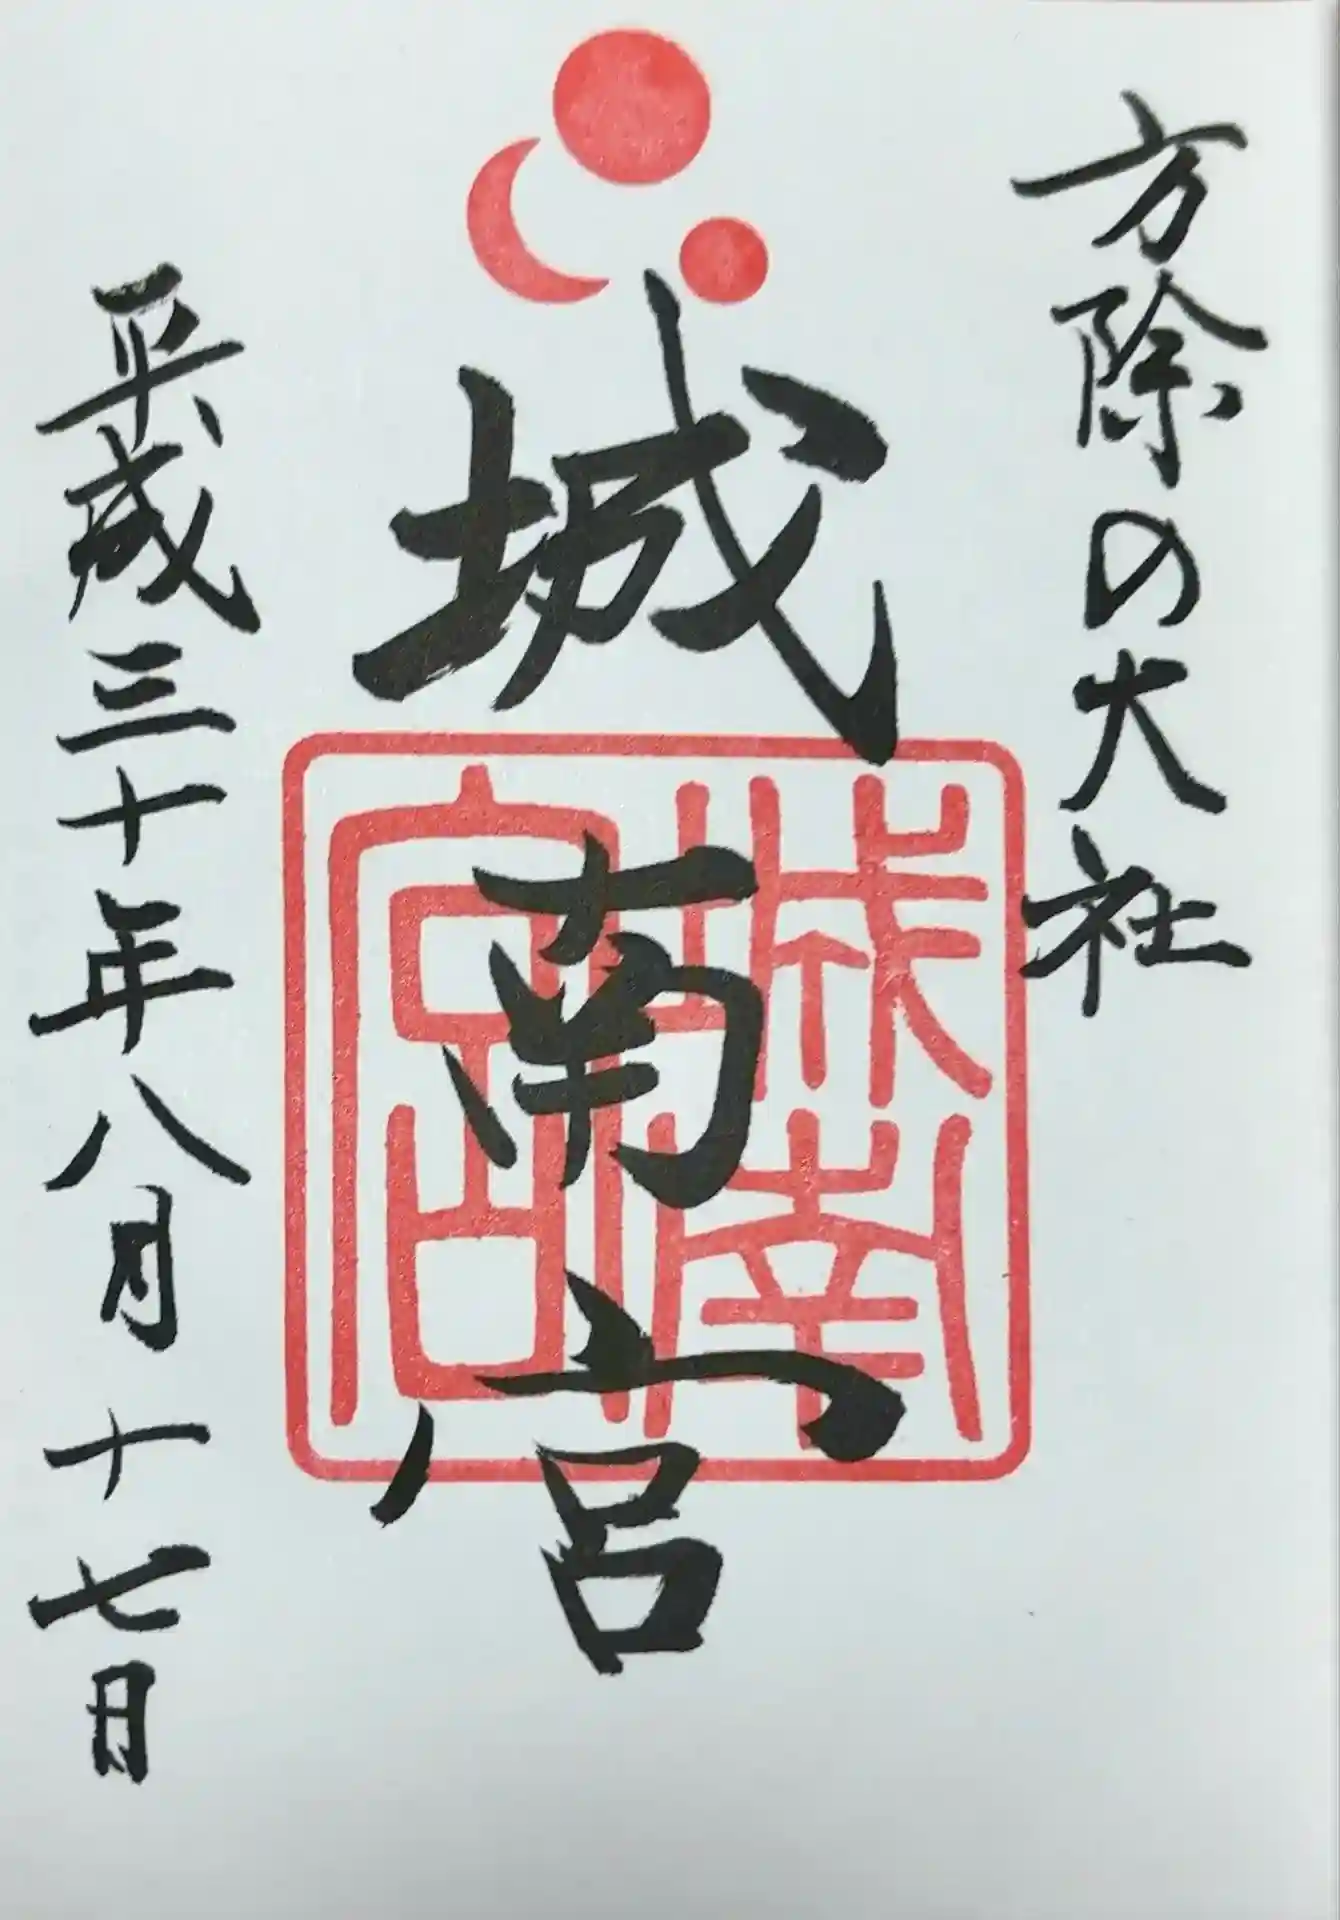 方除の大社
城南宮
城南宮
平成三十年八月十七日